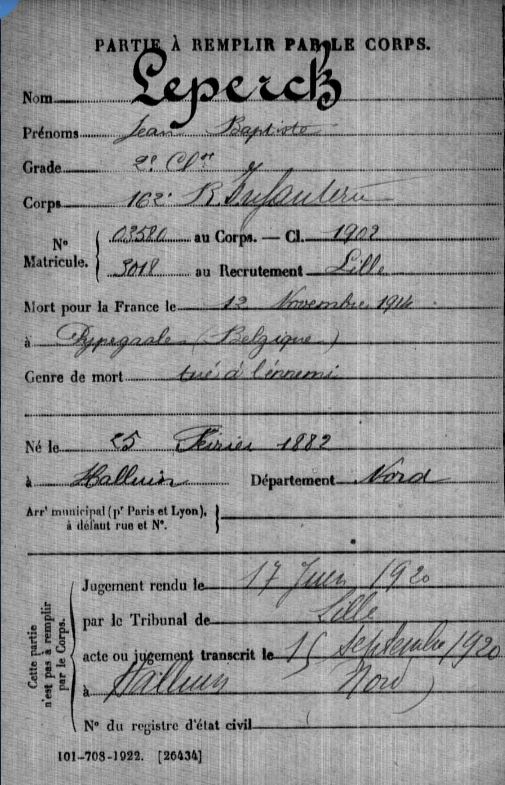 PARTIE À REMPLIR PAR LE CORPS.
Nom Leperck
Prénoms Jean Baptiste
Grade 2e Clse
Corps 162e R. Infanterie
Nº Matricule. { 03580 au Corps. — Cl. 1902
3018 au Recrutement Lille
Mort pour la France le 12 Novembre 1914
à Pypegaale (Belgique)
Genre de mort tué à l'ennemi
Né le 25 Février 1882
à Halluin Département Nord
Arrt municipal (pr Paris et Lyon), à défaut rue et Nº. }
Cette partie n'est pas à remplir par le Corps.
Jugement rendu le 17 Juin 1920
par le Tribunal de Lille
acte ou jugement transcrit le 15 Septembre 1920
à Halluin Nord)
Nº du registre d'état civil
101-708-1922. [26434]